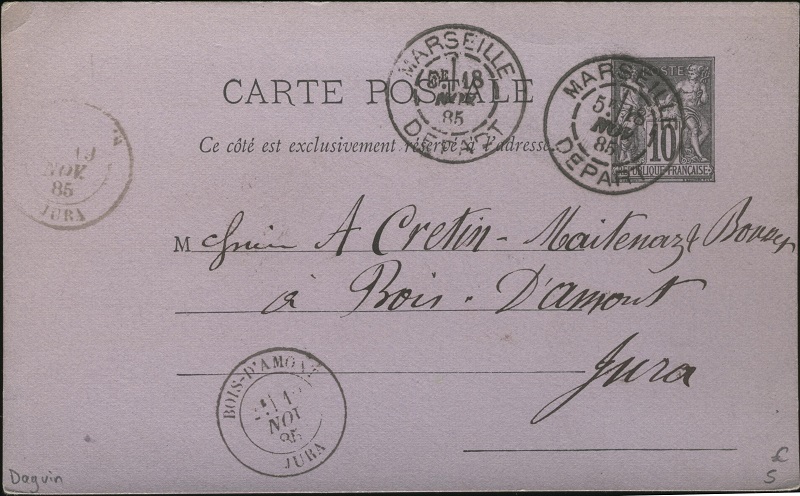 MARSEILLE
5E 18
NOV
85
DEPART
MARSEILLE
5E 18
NOV
85
DEPART
POSTE
10
REPUBLIQUE FRANÇAISE
CARTE POSTALE
Ce côté est exclusivement réservé à l'adresse.
19
NOV
85
JURA
M A Cretin - Maitenaz &
à Bois - D'amont
Jura
BOIS-D'AMONT
NOV
85
JURA
Daguin
£
5